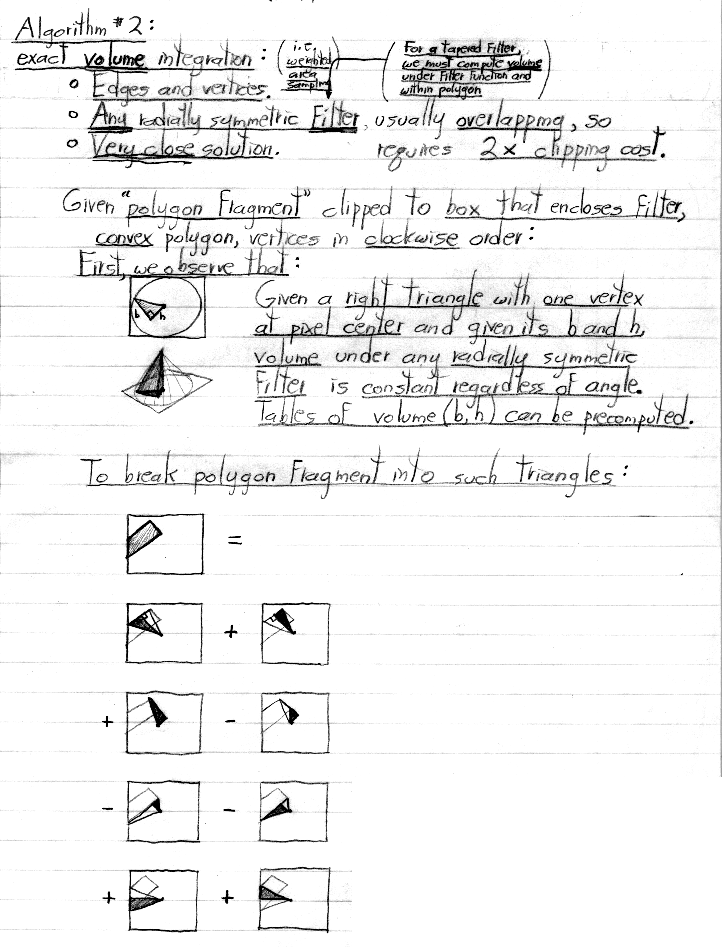 Algorithm #2:
exact volume integration: (i.e. weighted area sampling) (For a tapered filter,
we must compute volume
under filter function and
within polygon)
o Edges and vertices.
o Any radially symmetric Filter, usually overlapping, so
requires 2x clipping cost.
o Very close solution.
Given "polygon fragment" clipped to box that encloses filter,
convex polygon, vertices in clockwise order:
First, we observe that:
b h
Given a right triangle with one vertex
at pixel center and given its b and h,
volume under any radially symmetric
filter is constant regardless of angle.
Tables of volume (b,h) can be precomputed.
To break polygon fragment into such triangles:
=
+
+ -
- -
+ +